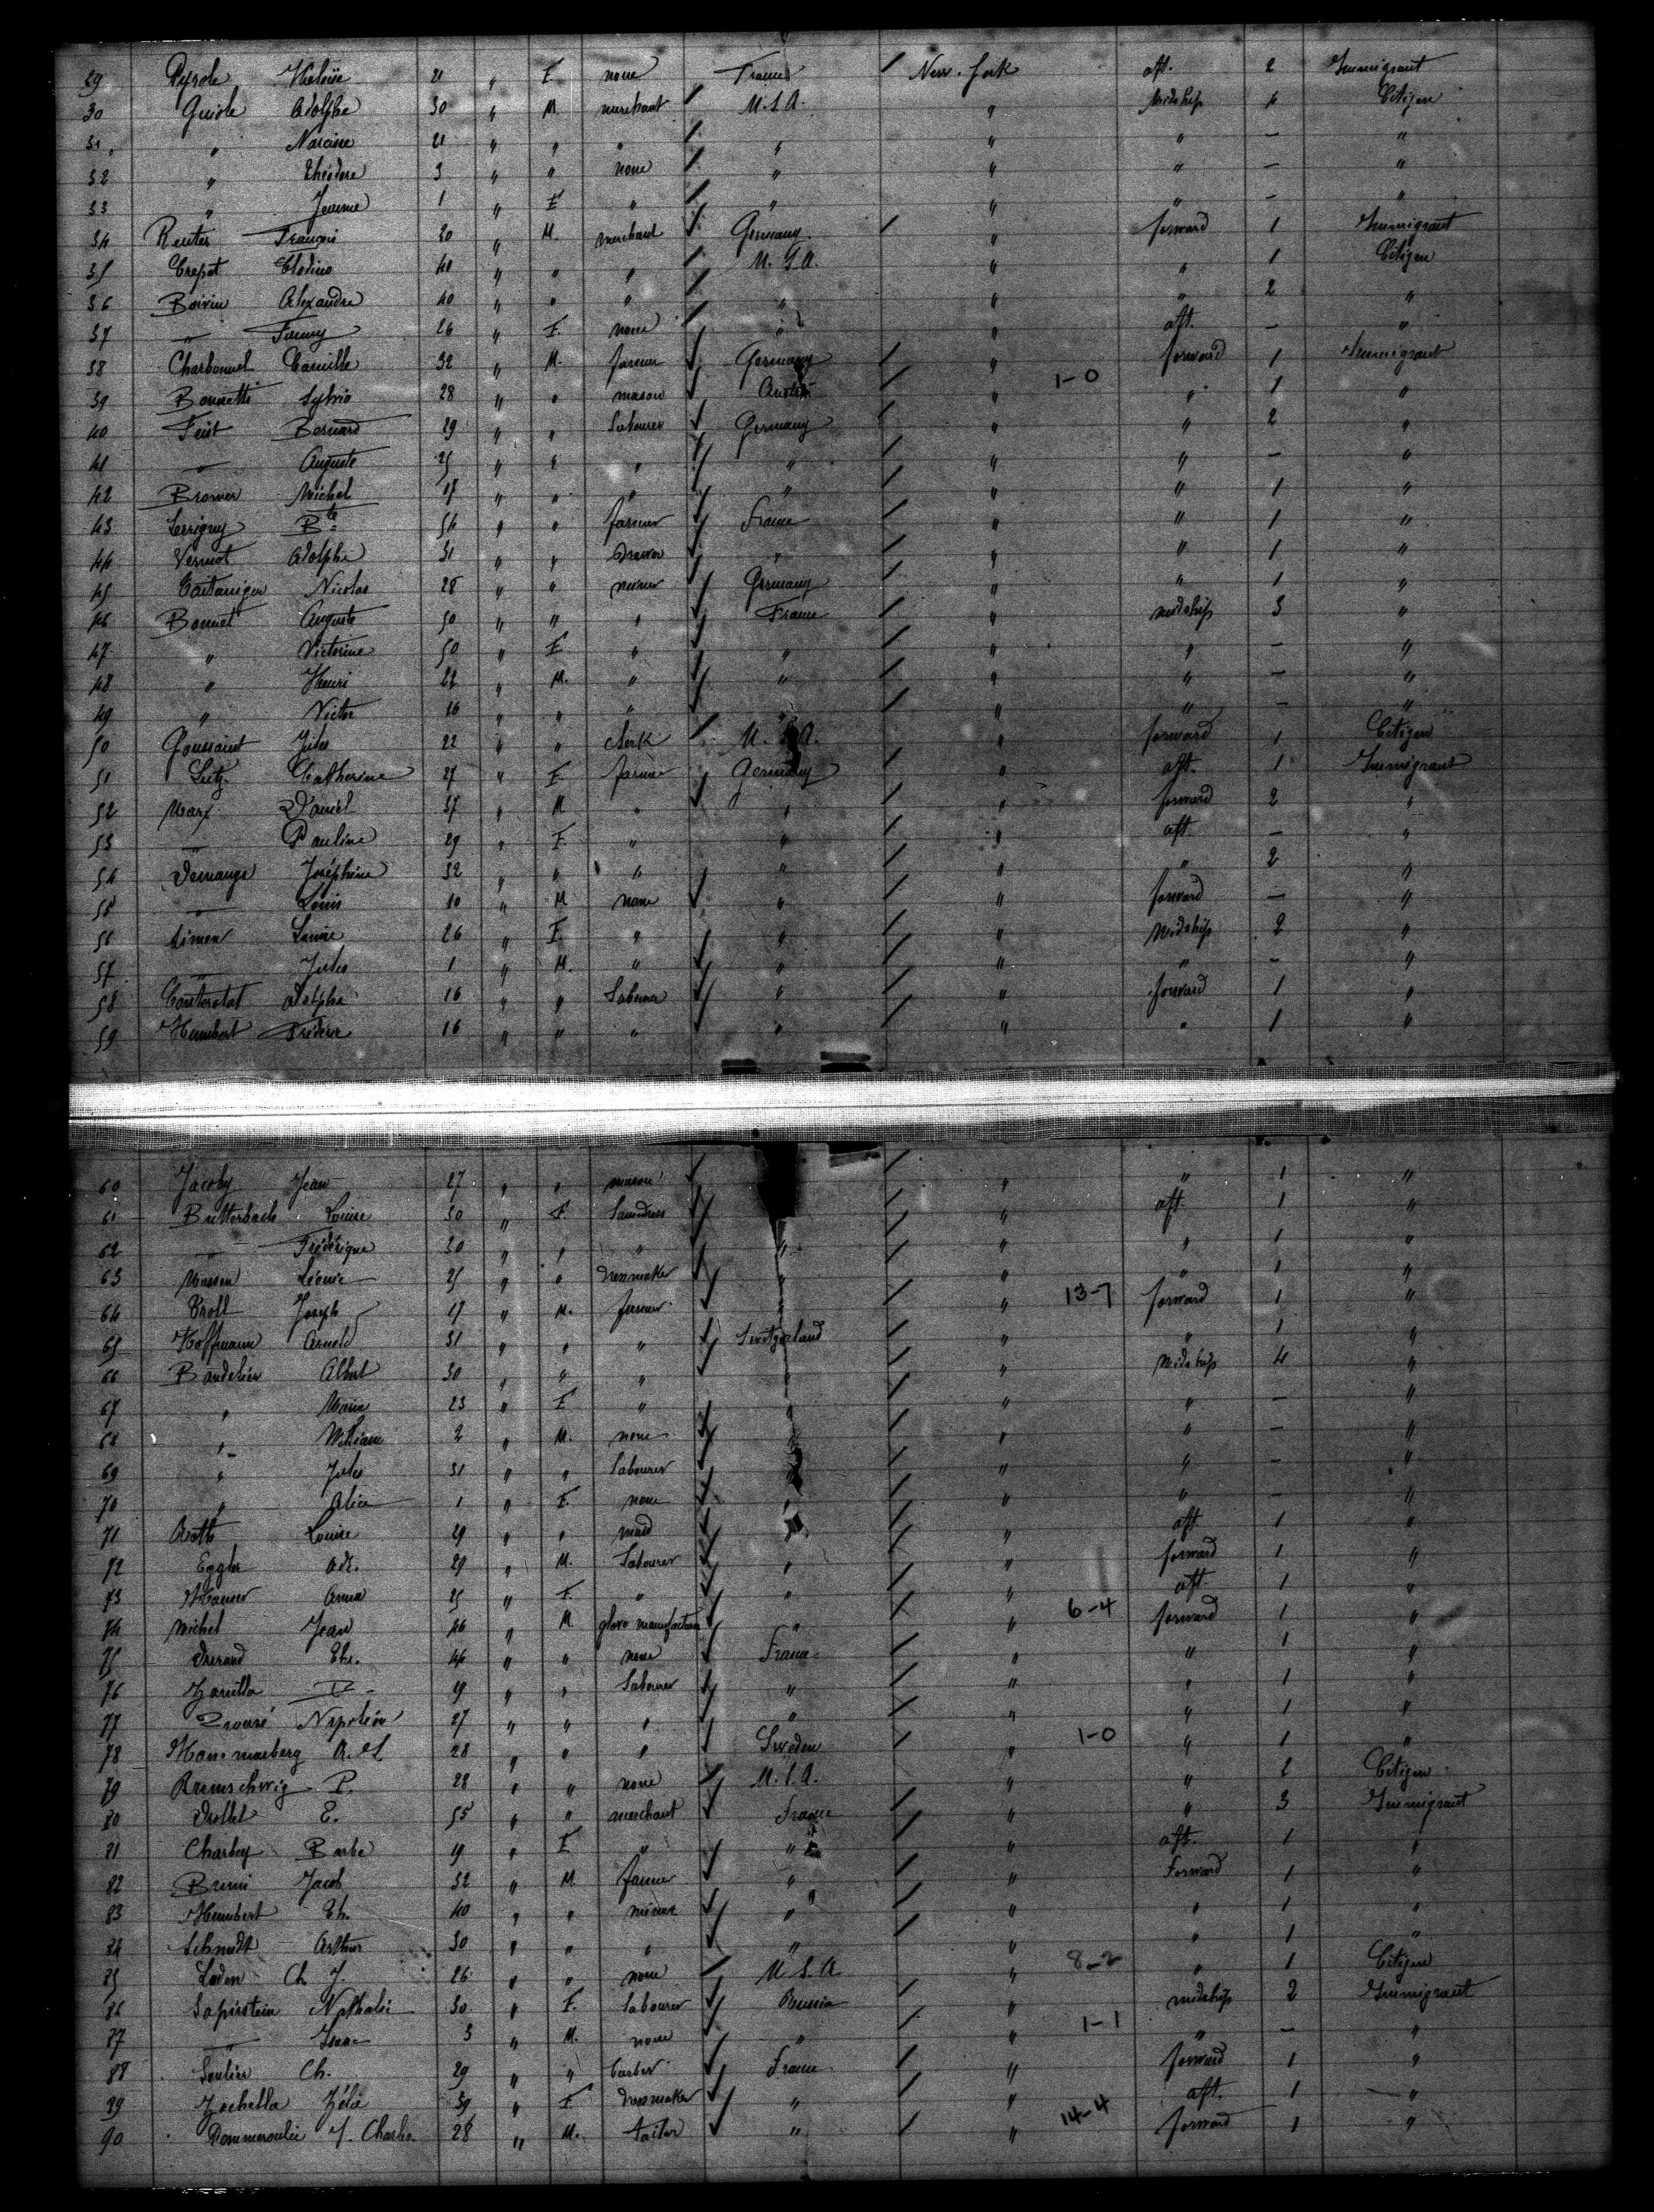 29 Heloïse 21 " F. none France New-York aft. 2 Immigrant
30 Guiole Adolphe 30 " M. merchant U.S.A. " Midship 4 Citizen
31 " Narcisse 21 " " " " " " — "
32 " Théodore 3 " " none " " " — "
33 " 1 " F " " " " — "
34 Reuter François 30 " M. merchant Germany " forward 1 Immigrant
35 Crepot 40 " " " U.S.A. " " 1 Citizen
36 Boivin Alexandre 40 " " " " " " 2 "
37 " Fanny 26 " F. none " " aft. — "
38 Charbonnel Camille 32 " M. farmer Germany " forward 1 Immigrant
39 Bonnetti Sylvio 28 " " mason " 1-0 " 1 "
40 Feist Bernard 29 " " Labourer Germany " " 2 "
41 " Auguste 25 " " " " " " — "
42 Michel 17 " " " " " " 1 "
43 Serrigny Bte 54 " " farmer France " " 1 "
44 Vernot Adolphe 31 " " " " " 1 "
45 Nicolas 28 " " miner Germany " " 1 "
46 Bonnet Auguste 50 " " " France " midship 3 "
47 " Victorine 50 " F. " " " " — "
48 " Henri 22 " M. " " " " — "
49 " Victor 16 " " " " " " — "
50 Toussaint Jules 22 " " clerk U.S.A. " forward 1 Citizen
51 Lutz Catherine 27 " F. farmer Germany " aft. 1 Immigrant
52 Marx Daniel 37 " M " " " forward 2 "
53 " Pauline 29 " F. " " " aft. — "
54 Demange Joséphine 32 " " " " " " 2 "
55 " Louis 10 " M none " " forward — "
56 Aimer Louise 26 " F. " " " Midship 2 "
57 " Jules 1 " M. " " " " — "
58 Adolphe 16 " " Labourer " " forward 1 "
59 Humbert Frédéric 16 " " " " " " 1 "
60 Jacoby Jean 27 " " mason " " 1 "
61 Butterbach Louise 30 " F. Laundress " aft. 1 "
62 " Frédérique 30 " " " " " " 1 "
63 Masson Léonie 25 " " dressmaker " " " 1 "
64 Kroll Joseph 17 " M. farmer " 13-7 forward 1 "
65 Hoffmann Arnold 31 " " " Switzerland " " 1 "
66 Bandelier Albert 30 " " " " Midship 4 "
67 " Marie 23 " F " " " — "
68 " William 2 " M. none " " — "
69 " Jules 31 " " Labourer " " — "
70 " Alice 1 " F. none " " " — "
71 Roth Louise 29 " " maid " aft 1 "
72 Eggler Ad. 29 " M. Labourer " " forward 1 "
73 Anna 25 " F. " " " aft. 1 "
74 Michel Jean 46 " M glove manufacturer " " 6-4 forward 1 "
75 Durand Th. 46 " " none France " " 1 "
76 19 " " Labourer " " " 1 "
77 Napoléon 27 " " " " " " 1 "
78 28 " " " Sweden " 1-0 " 1 "
79 P. 28 " " none U.S.A. " " 2 Citizen
80 Drollet E. 55 " " merchant France " " 3 Immigrant
81 Charbey Barbe 19 " F " " " aft. 1 "
82 Bruni Jacob 32 " M farmer " " Forward 1 "
83 Humbert Th. 40 " " miner " " " 1 "
84 Schmidt Arthur 30 " " " " " " 1 "
85 Loden Ch. J. 26 " " none U.S.A " 8-2 " 1 Citizen
86 Sapirstein Nathalie 30 " F. Labourer Russia " midship 2 Immigrant
87 " Isaac 3 " M. none " " 1-1 " — "
88 Soulier Ch. 29 " " barber France " forward 1 "
89 Zochella Zélie 39 " F dressmaker " " aft. 1 "
90 J. Charles 28 " M. tailor " " 14-4 forward 1 "